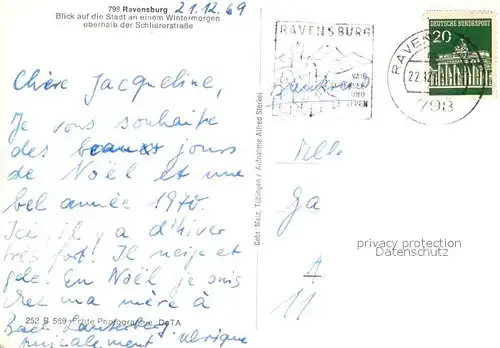 798 Ravensburg
Blick auf die Stadt an einem Wintermorgen
oberhalb der Schliererstraße
21.12.69
Chère Jacqueline,
Je vous souhaite
des beaux jours
de Noël et une
bel année 1970.
Ici, il y a d'hiver
très fort. Il neige et
gele. En Noël je suis
chez ma mère à
Bad
amicalement Ulrique
252 B 589 Echte Photographie DeTA
Gebr. Metz, Tübingen / Aufnahme Alfred Sterkel
RAVENSBURG
UND
DEUTSCHE BUNDESPOST
20
22.12
798
Mlle
Ga
A
11
privacy protection
Datenschutz